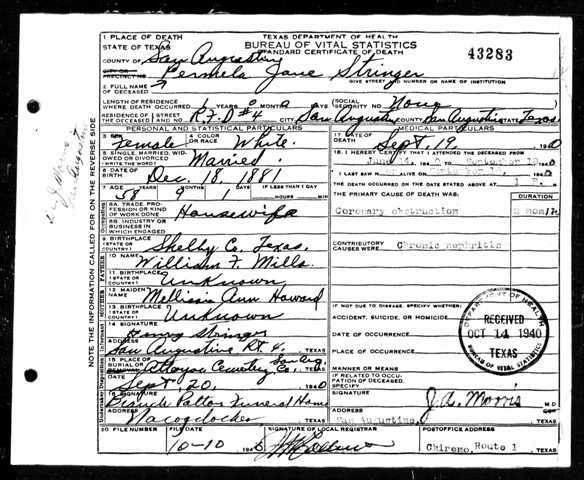 1 PLACE OF DEATH
STATE OF TEXAS
TEXAS DEPARTMENT OF HEALTH
BUREAU OF VITAL STATISTICS
STANDARD CERTIFICATE OF DEATH
43283
COUNTY OF San Augustine
CITY OR
PRECINCT NO.
GIVE STREET AND NUMBER OR NAME OF INSTITUTION
2. FULL NAME OF DECEASED Permela Jane Stringer
LENGTH OF RESIDENCE WHERE DEATH OCCURRED
SOCIAL SECURITY NO. None
RESIDENCE OF THE DECEASED STREET AND NO. R.F.D #4 CITY San Augustine COUNTY San Augustine STATE Texas
PERSONAL AND STATISTICAL PARTICULARS
MEDICAL PARTICULARS
3 SEX Female
4 COLOR OR RACE White
17 DATE OF DEATH Sept. 19, 1940
5 SINGLE, MARRIED, WIDOWED OR DIVORCED (WRITE THE WORD) Married
18. I HEREBY CERTIFY THAT I ATTENDED THE DECEASED FROM
June 14, 0 September 19 1940
6 DATE OF BIRTH Dec. 18, 1881
THE DEATH OCCURRED ON THE DATE STATED ABOVE AT
7 AGE YEARS MONTHS DAYS IF LESS THAN 1 DAY
58 9 1 HOURS MIN
THE PRIMARY CAUSE OF DEATH WAS:
DURATION
8A. TRADE, PROFESSION OR KIND OF WORK DONE Housewife
Coronary obstruction
8B. INDUSTRY OR BUSINESS IN WHICH ENGAGED
9 BIRTHPLACE (STATE OR COUNTRY) Shelby Co, Texas.
CONTRIBUTORY CAUSES WERE: Chronic nephritic
10 NAME William F. Mills
11 BIRTHPLACE (STATE OR COUNTRY) Unknown
12 MAIDEN NAME Mellissie Ann Howard
13 BIRTHPLACE (STATE OR COUNTRY) Unknown
IF NOT DUE TO DISEASE, SPECIFY WHETHER:
ACCIDENT, SUICIDE, OR HOMICIDE
DATE OF OCCURRENCE
14 SIGNATURE Henry Stringer
ADDRESS San Augustine Rt. 4. TEXAS
PLACE OF OCCURRENCE
15 PLACE OF BURIAL OR REMOVAL Attoyac Cemetery San Aug. Co, TEXAS
MANNER OR MEANS
DATE Sept 20, 1940
IF RELATED TO OCCUPATION OF DECEASED, SPECIFY
16 SIGNATURE Funeral Home
ADDRESS Nacogdoches TEXAS
SIGNATURE J. A. Morris M.D.
ADDRESS San Augustine, TEXAS
20 FILE NUMBER
FILE DATE 10-10 1940
SIGNATURE OF LOCAL REGISTRAR
POSTOFFICE ADDRESS
Chireno, Route 1 TEXAS
DEPARTMENT OF HEALTH
RECEIVED
OCT 14 1940
TEXAS
BUREAU OF VITAL STATISTICS
NOTE THE INFORMATION CALLED FOR ON THE REVERSE SIDE
FATHER
MOTHER